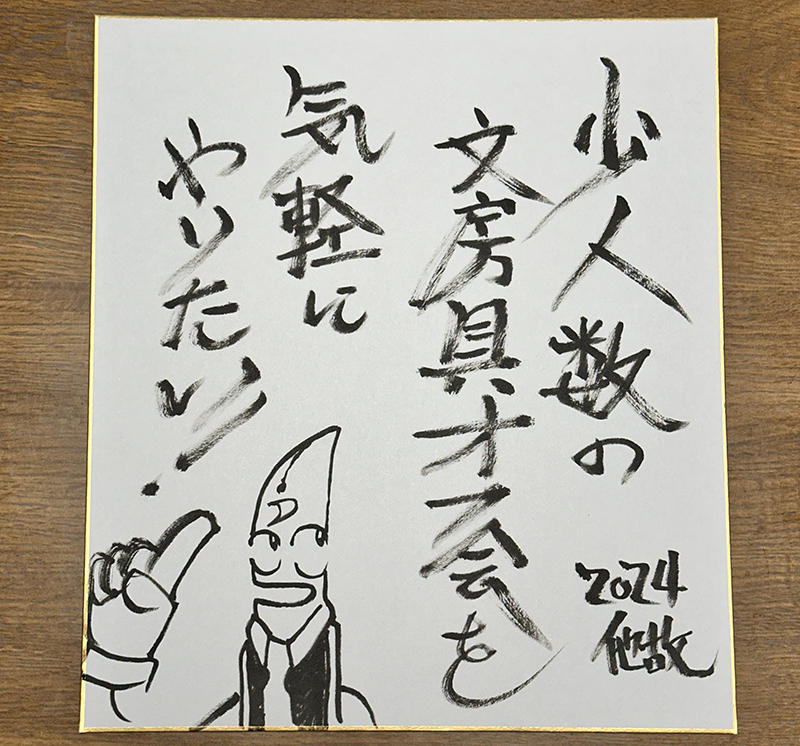 少人数の
文房具オフ会を
気軽に
やりたい!
2024
他故